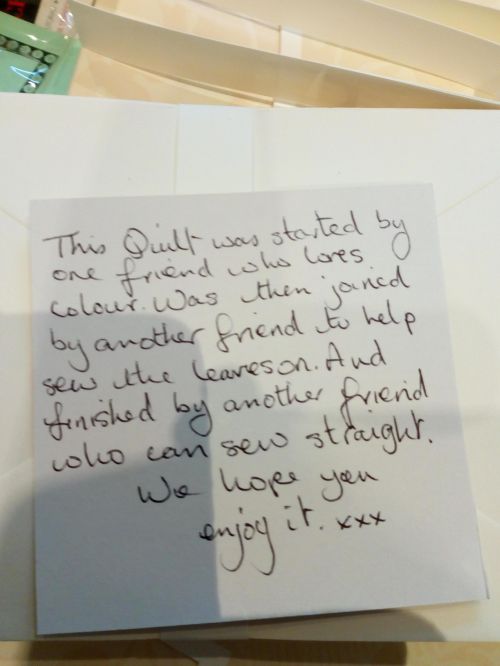 This Quilt was started by
one friend who loves
colour. Was then joined
by another friend to help
sew the leaves on. And
finished by another friend
who can sew straight.
We hope you
enjoy it. xxx